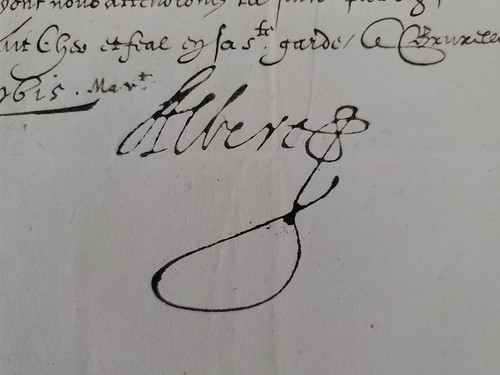 nous attendrons
Cher et feal en sa s.te garde / de Bruxelles
1615. Mar.t
Albert